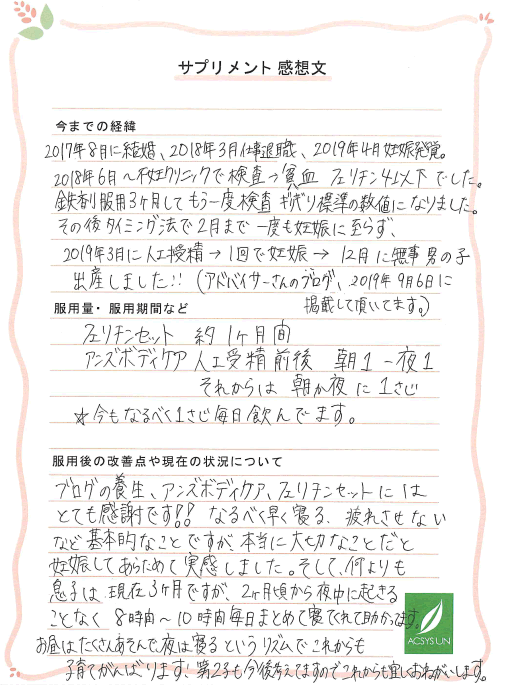 サプリメント 感想文
今までの経緯
2017年8月に結婚、2018年3月仕事退職、2019年4月妊娠発覚。
2018年6月〜不妊クリニックで検査→貧血 フェリチン4以下でした。
鉄剤服用3ヶ月してもう一度検査 ギリギリ標準の数値になりました。
その後タイミング法で2月まで一度も妊娠に至らず、
2019年3月に人工授精→1回で妊娠→12月に無事男の子
出産しました!!(アドバイザーさんのブログ、2019年9月6日に
掲載して頂いてます。)
服用量・服用期間など
フェリチンセット 約1ヶ月間
アンズボディケア 人工受精前後 朝1-夜1
それからは 朝か夜に1さじ
☆今もなるべく1さじ毎日飲んでます。
服用後の改善点や現在の状況について
ブログの養生、アンズボディケア、フェリチンセットには
とても感謝です!! なるべく早く寝る、疲れさせない
など基本的なことですが、本当に大切なことだと
妊娠してあらためて実感しました。そして、何よりも
息子は現在3ヶ月ですが、2ヶ月頃から夜中に起きる
ことなく 8時間〜10時間毎日まとめて寝てくれて助かってます。
お昼はたくさんあそんで、夜は寝るというリズムでこれからも
子育てがんばります! 第2子も今後考えてますのでこれからも宜しくおねがいします。
ACSYS UN